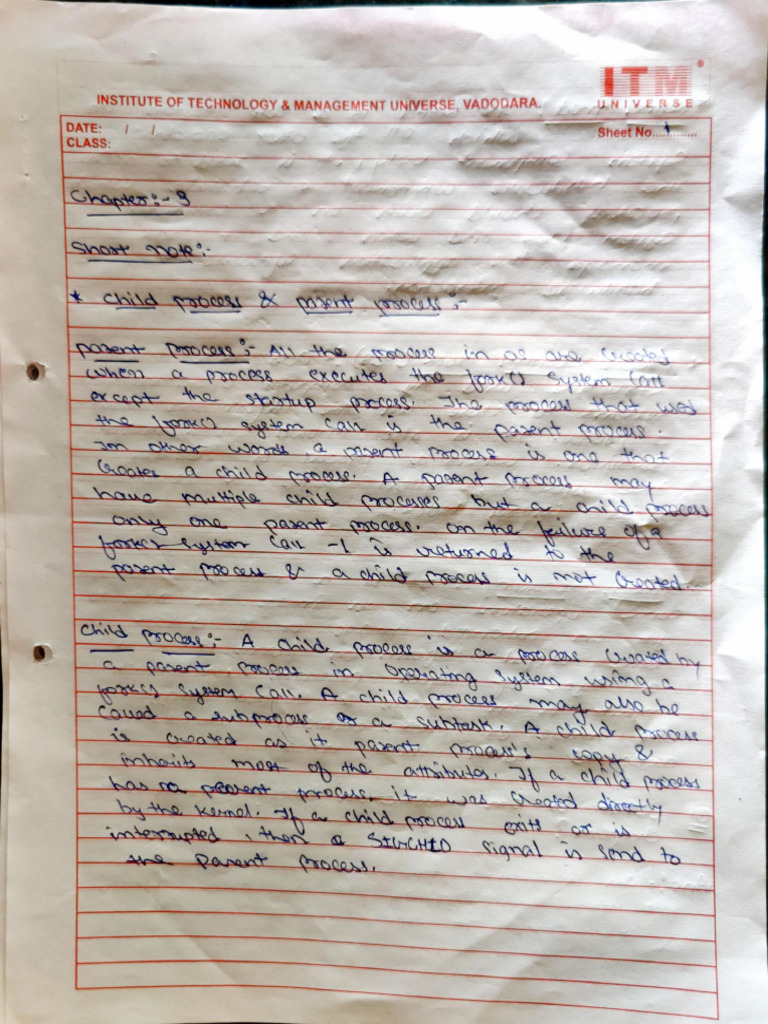 ITM
UNIVERSE
INSTITUTE OF TECHNOLOGY & MANAGEMENT UNIVERSE, VADODARA.
DATE: / /
Sheet No....1........
CLASS:
Chapter:- 3
Short note:-
* Child process & parent process:-
parent process:- All the process in os are created
when a process executes the fork() system call
except the startup process. The process that was
the fork() system call is the parent process.
In other words, a parent process is one that
creates a child process. A parent process may
have multiple child processes but a child process
only one parent process. On the failure of a
fork() system call -1 is returned to the
parent process & a child process is not created.
Child process:- A child process is a process created by
a parent process in operating system using a
fork() system call. A child process may also be
called a subprocess or a subtask. A child process
is created as it parent process's copy &
inherits most of the attributes. If a child process
has no parent process, it was created directly
by the kernel. If a child process exits or is
interrupted, then a SIGCHLD signal is send to
the parent process.